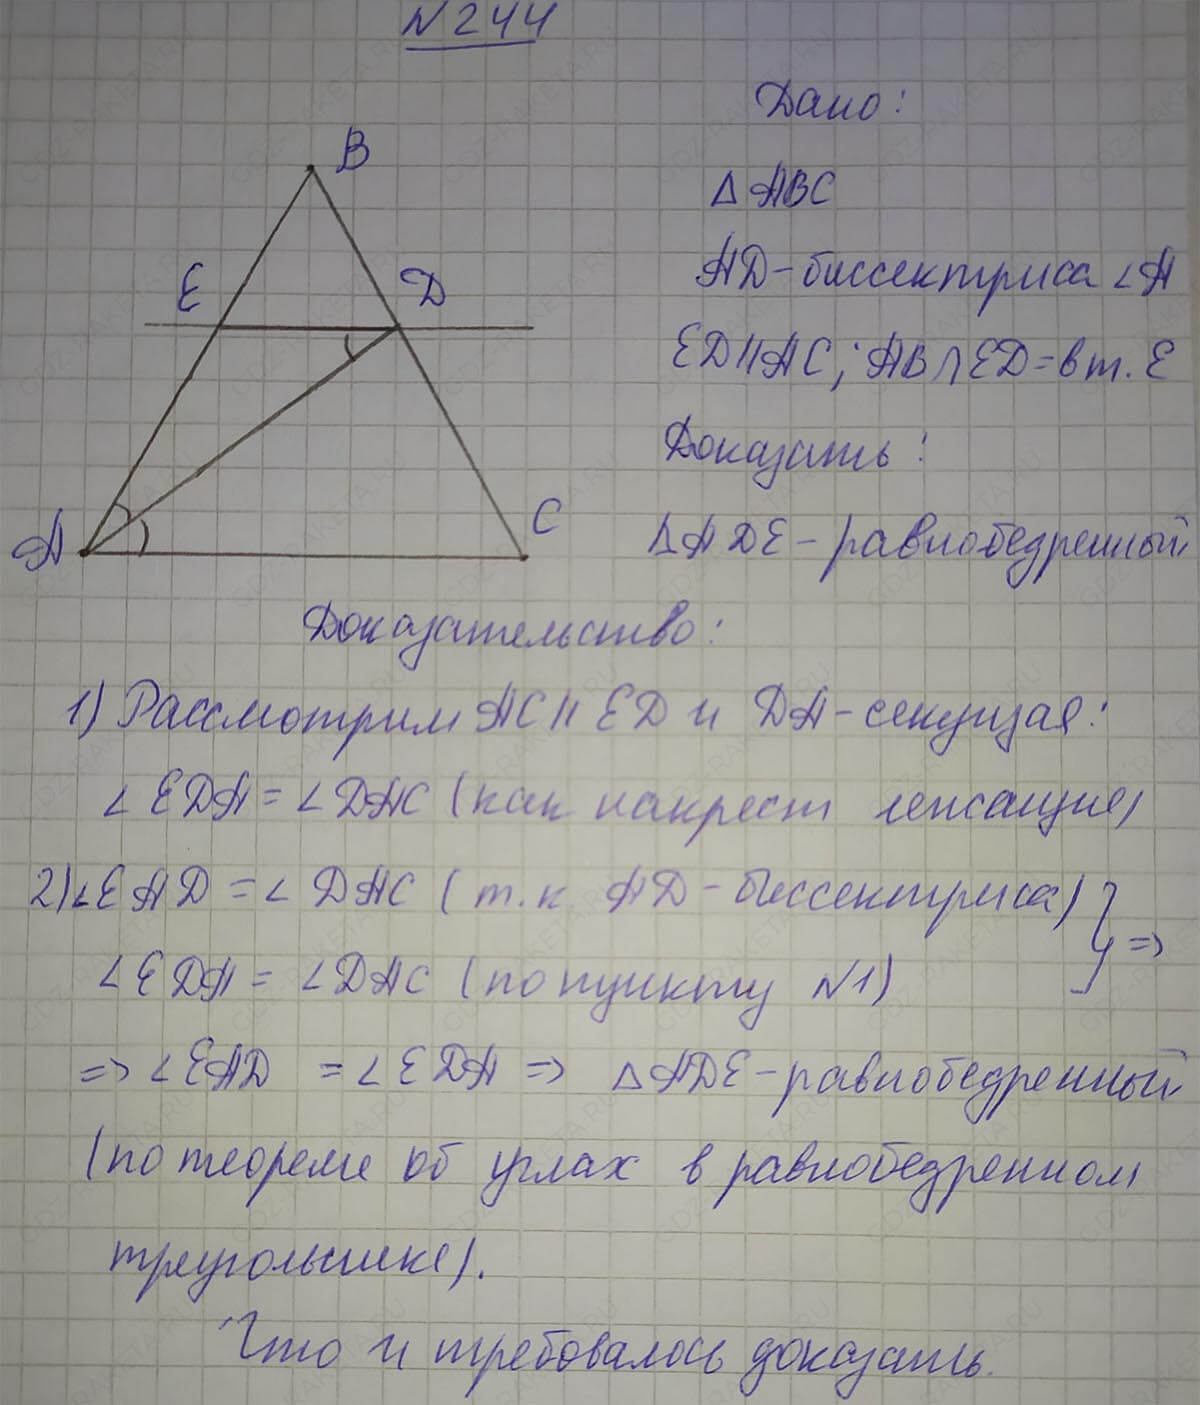 №244
B
E
D
A
C
Дано:
△ABC
AD-биссектриса ∠A
ED||AC; AB∩ED=в т. E
Доказать:
△ADE-равнобедренный
Доказательство:
1) Рассмотрим AC|| ED и DA-секущая:
∠EDA=∠DAC (как накрест лежащие)
2)∠EAD=∠DAC (т.к. AD-биссектриса) } =>
∠EDA=∠DAC (по пункту №1)
=> ∠EAD =∠EDA => △ADE-равнобедренный
(по теореме об углах в равнобедренном
треугольнике).
Что и требовалось доказать.